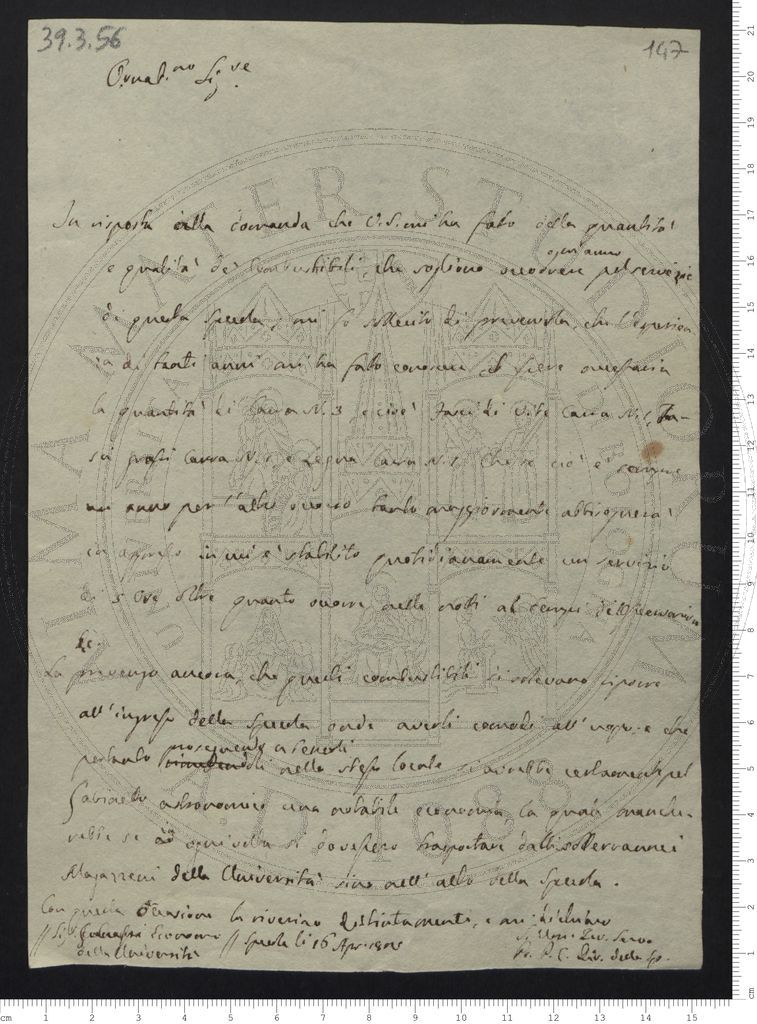 39.3.56
147
Ornat.mo Sig.re
In risposta alla domanda che V.S. mi ha fato della quantità
ogni anno
e qualità de' Combustibili, che sogliono occorrere pel servizio
di questa Specola, mi fo sollecito di prevenirla, che l'esperien
za di tanti anni mi ha fato conoscere essere necessaria
la quantità di Carra N. 3, e cioè Fassi di Vite Carra N. 1, Fa-
ssi grossi Carra N. 1 e Legna Carra N. 1. Che se ciò è sempre
un anno per l'altro occorso tanto maggiormente abbisognerà
in appresso in cui è stabilito quotidianamente un servizio
di 5 ore oltre quanto occorre nelle notti al tempo dell'Osservazion
&c.
La prevengo ancora, che questi combustibili si solevano riporre
all'ingresso della Specola onde averli comodi all'uopo, e che
pertanto proseguendo a tenerli
nello stesso locale si avrebbe certamente pel
Gabinetto astronomico una notabile economia la quale manche-
rebbe se ad ogni volta si dovessero trasportare dalli sotterranei
Magazzeni della Università sino nell'alto della Specola.
Con questa occasione la riverisco distintamente, e mi dichiaro
// Sig.r Economo // Specola li 16 Apr.
della Università
P. C. Dir. della Sp.